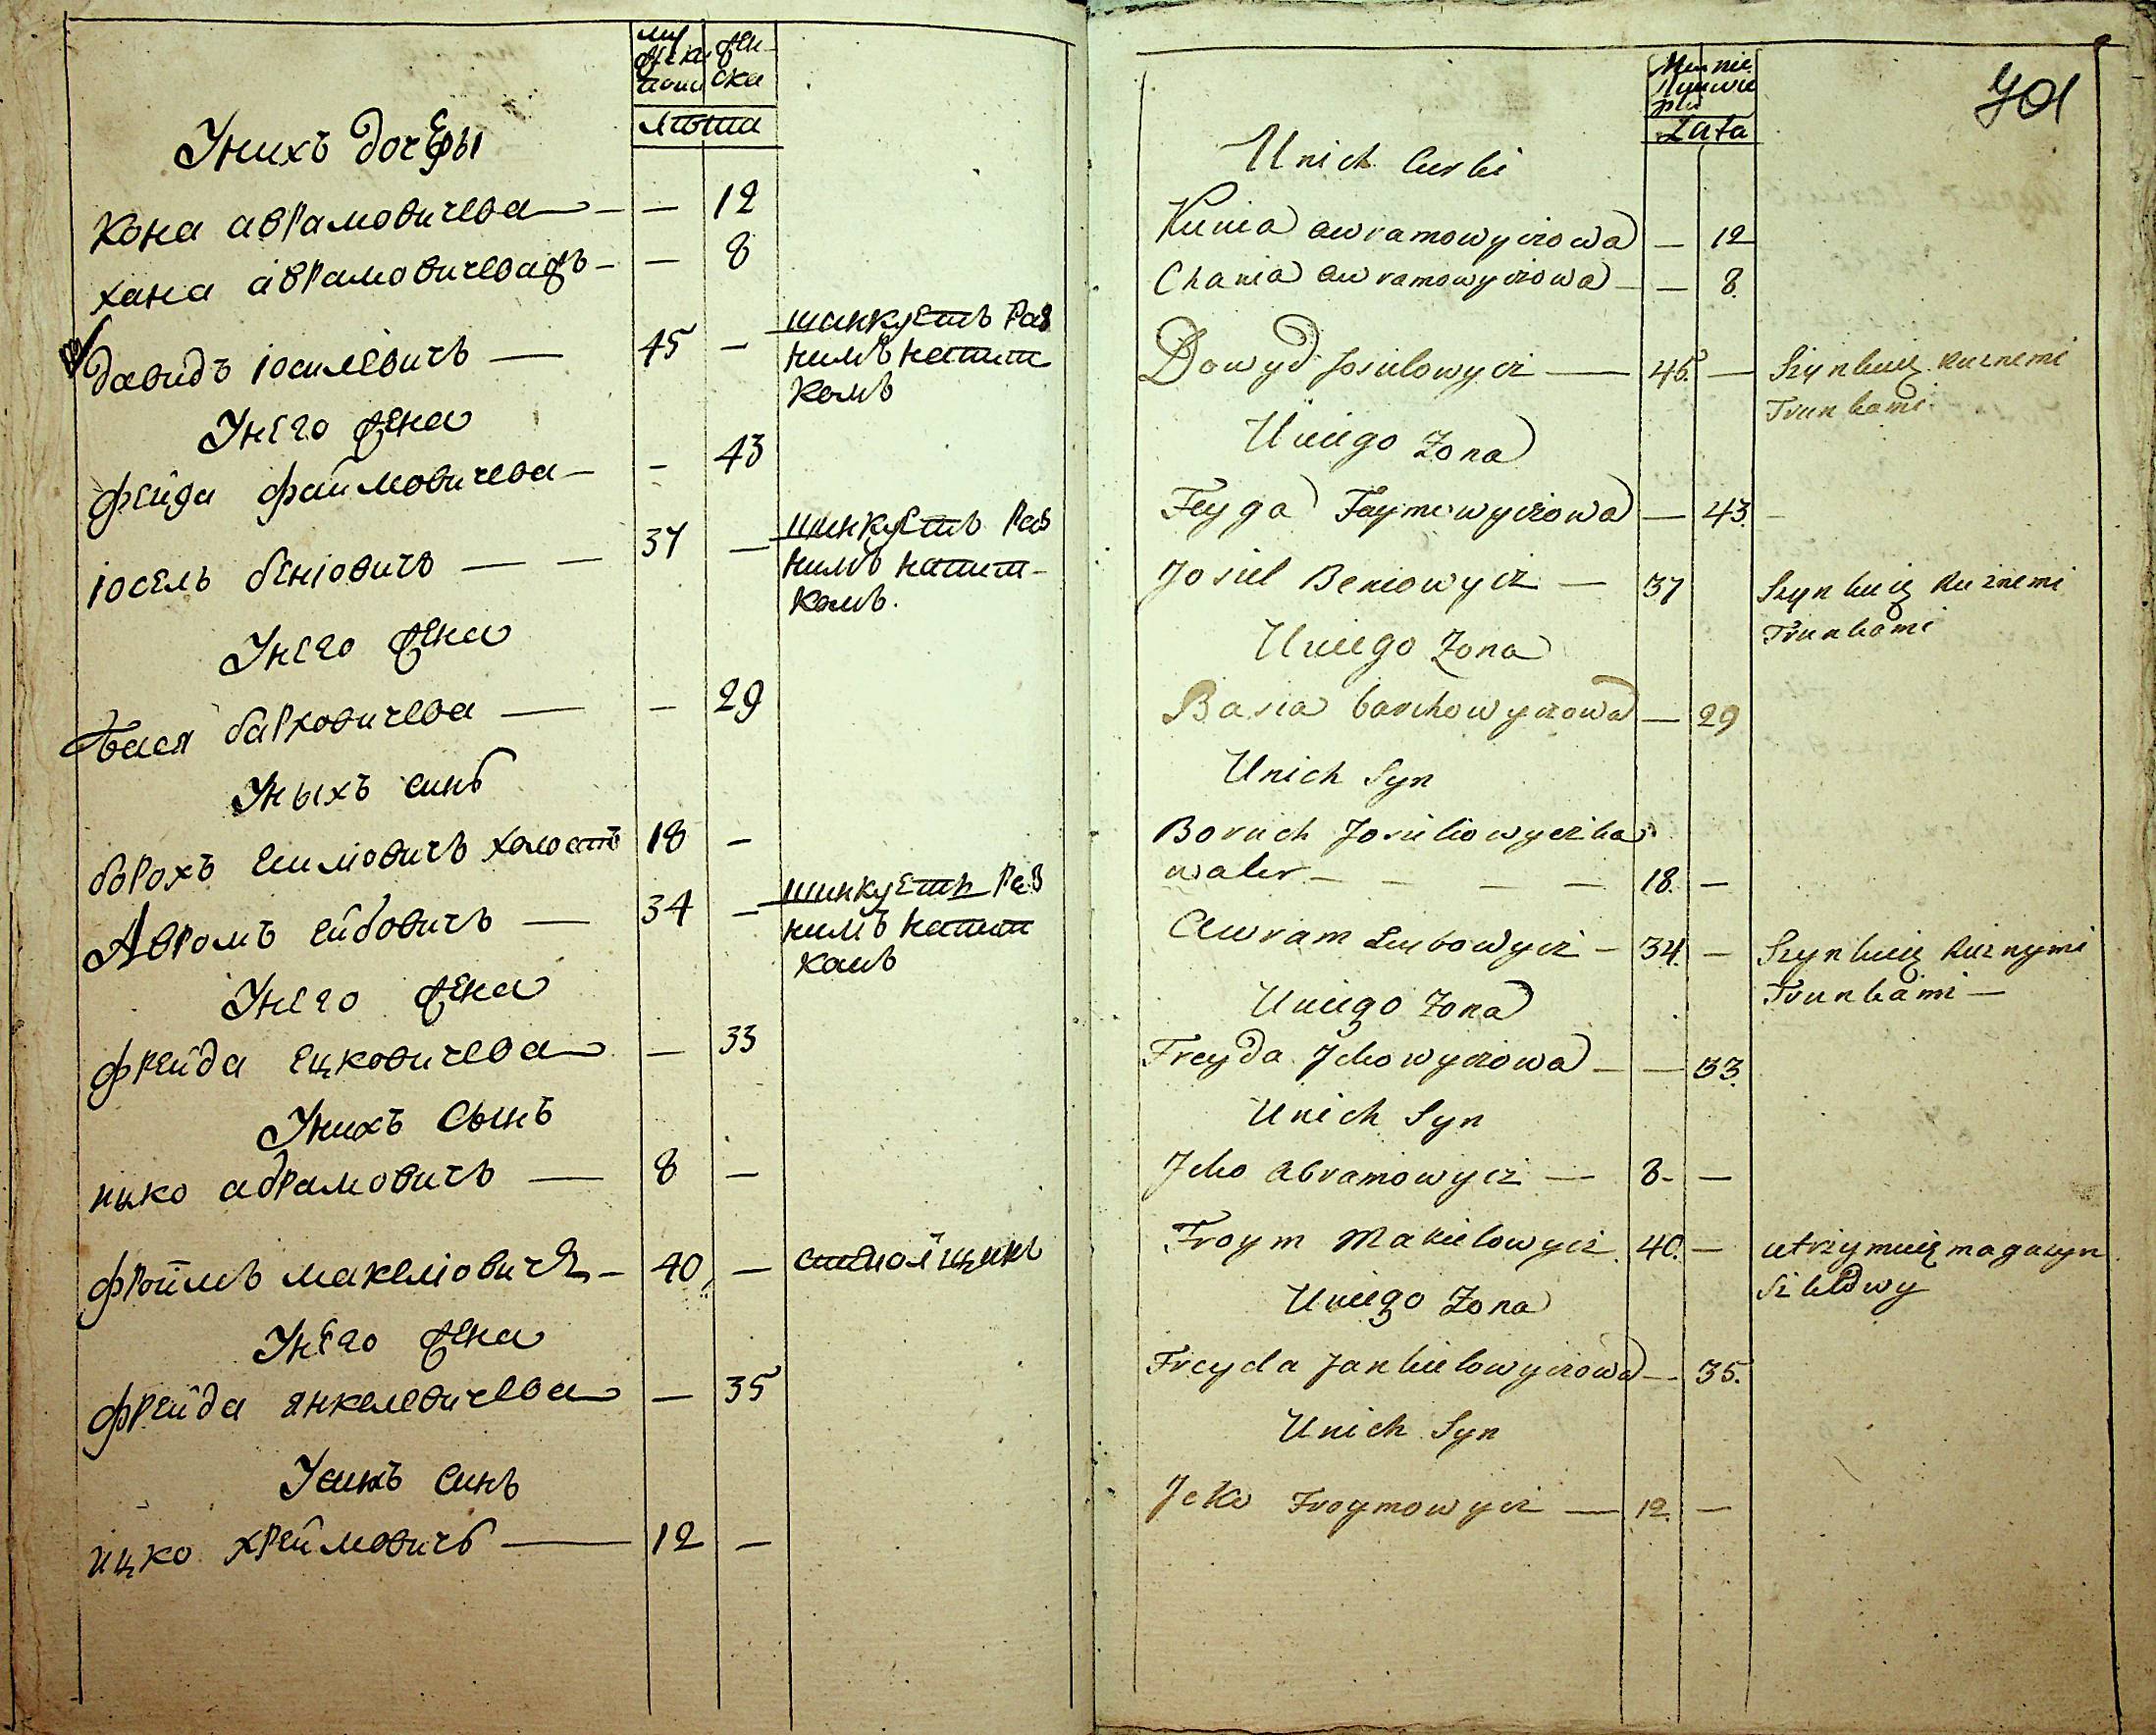 му жека полш
жен ска
лѣта
Унихъ дочеры
Кона аврамовичева — — 12
хана аврамовичева — — 8
давидъ іосилевичъ — 45 — шинкуетъ раз
нимъ напит
комъ
Унего жена
фейга файмовичева — — 43
іосель беніовичъ — — 37 — шинкуетъ раз
нимъ напит-
комъ.
Унего жена
бася барховичева — — 29
Уныхъ синъ
борохъ холостъ 18 —
Авромъ лейбовичъ — 34 — шинкуетъ раз
нимъ напит
комъ
Унего жена
фрейда ецковичева — 33
Унихъ Сынъ
ицко абрамовичъ — 8 —
фроймъ макеліовичъ — 40 —
Унего жена
фрейда янкелевичева — 35
Унихъ синъ
ицко хреймовичъ — 12 —
701
Lata
Unich Curki
Kunia awramowyczowa — 12
Chania awramowyczowa — — 8.
Dowyd Josielowycz — 45. — Szynkuię Ruznemi
Trunkami
Uniego Zona
Feyga Faymowyczowa — 43. —
Josiel Beniowycz — 37 Szynkuię Ruznemi
Trunkami
Uniego Zona
Basia barchowyczowa — 29
Unich Syn
Boruch Josielowycz ka
waler — — — — 18. —
Awram Leybowycz — 34. — Szynkuię Ruznymi
Trunkami —
Uniego Zona
Freyda Ickowyczowa — — 33.
Unich Syn
Icko Abramowycz — 8. —
Froym Makielowycz 40. — utrzymuię magazyn
Uniego Zona
Freyda Jankielowyczowa — 35.
Unich Syn
Icko Froymowycz — 12. —